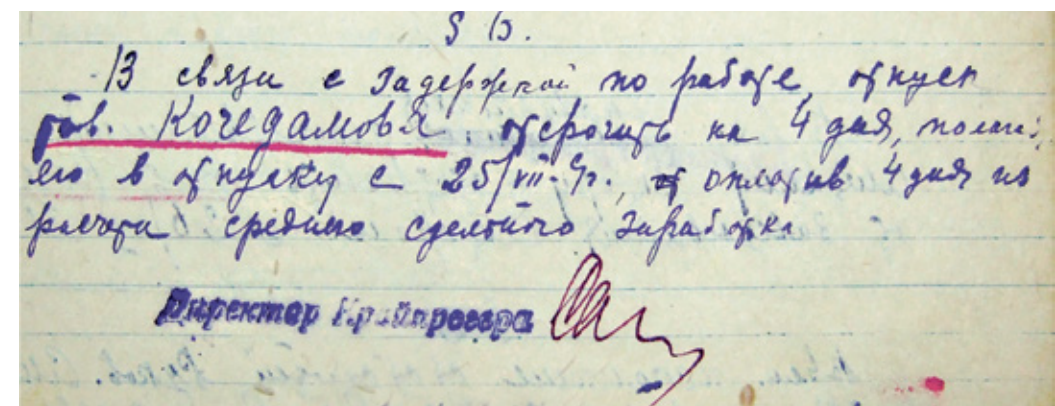 § 13.
В связи с задержкой по работе, отпуск
тов. Кочедамова отсрочить на 4 дня,
его в отпуску с 25/VII- оплатив 4 дня из
расчета среднего сдельного заработка
Директор Крайпроекта